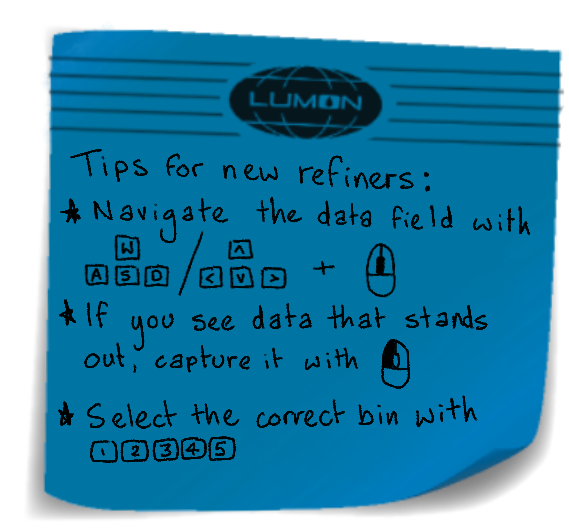 LUMON
Tips for new refiners:
★ Navigate the data field with
W
A S D / < ^ v > +
★ If you see data that stands
out, capture it with
★ Select the correct bin with
1 2 3 4 5